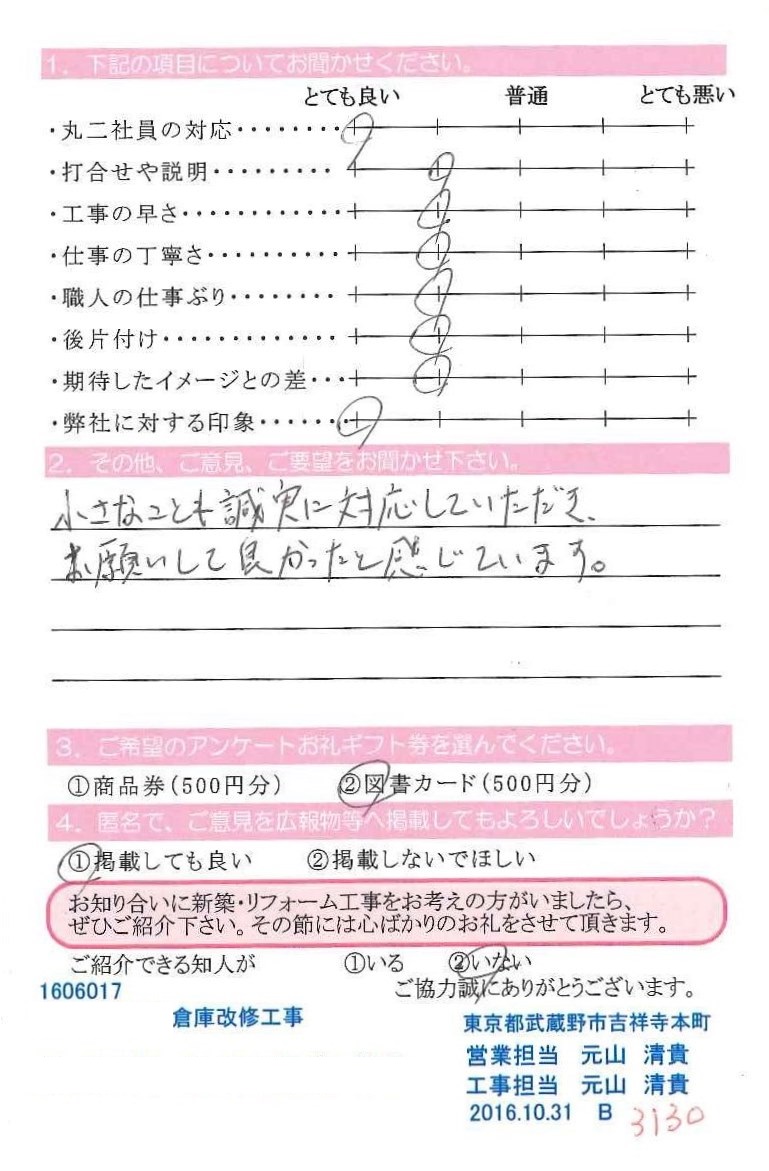 1. 下記の項目についてお聞かせください。
とても良い 普通 とても悪い
・丸二社員の対応········
・打合せや説明·········
・工事の早さ············
・仕事の丁寧さ··········
・職人の仕事ぶり········
・後片付け·············
・期待したイメージとの差···
・弊社に対する印象·······
2. その他、ご意見、ご要望をお聞かせ下さい。
小さなことも誠実に対応していただき、
お願いして良かったと感じています。
3. ご希望のアンケートお礼ギフト券を選んでください。
①商品券(500円分) ②図書カード(500円分)
4. 匿名で、ご意見を広報物等へ掲載してもよろしいでしょうか?
①掲載しても良い ②掲載しないでほしい
お知り合いに新築・リフォーム工事をお考えの方がいましたら、
ぜひご紹介下さい。その節には心ばかりのお礼をさせて頂きます。
ご紹介できる知人が ①いる ②いない
1606017 ご協力誠にありがとうございます。
倉庫改修工事 東京都武蔵野市吉祥寺本町
営業担当 元山 清貴
工事担当 元山 清貴
2016.10.31 B 3130